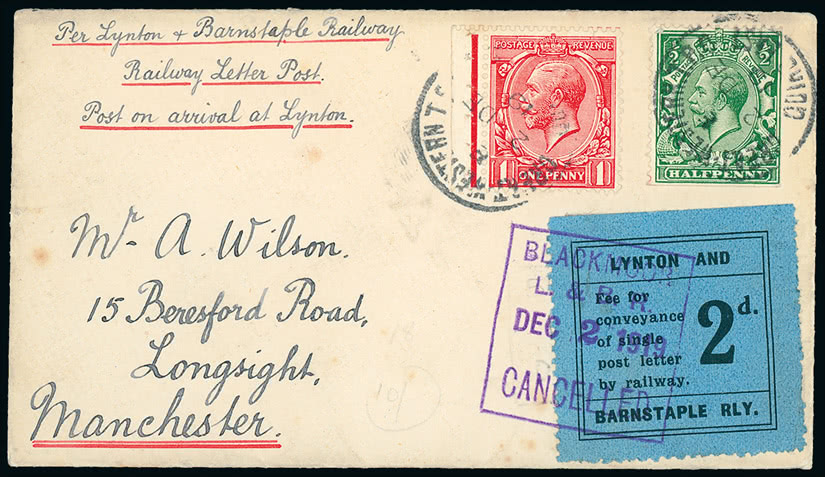 Per Lynton & Barnstaple Railway
Railway Letter Post.
Post on arrival at Lynton.
POSTAGE REVENUE
ONE PENNY
1 1
½ ½
POSTAGE REVENUE
HALFPENNY
Mr A. Wilson.
15 Beresford Road,
Longsight,
Manchester.
BLACKMOOR
L. & B. R.
DEC 2 1919
CANCELLED
LYNTON AND
Fee for
conveyance
of single
post letter
by railway.
2d.
BARNSTAPLE RLY.